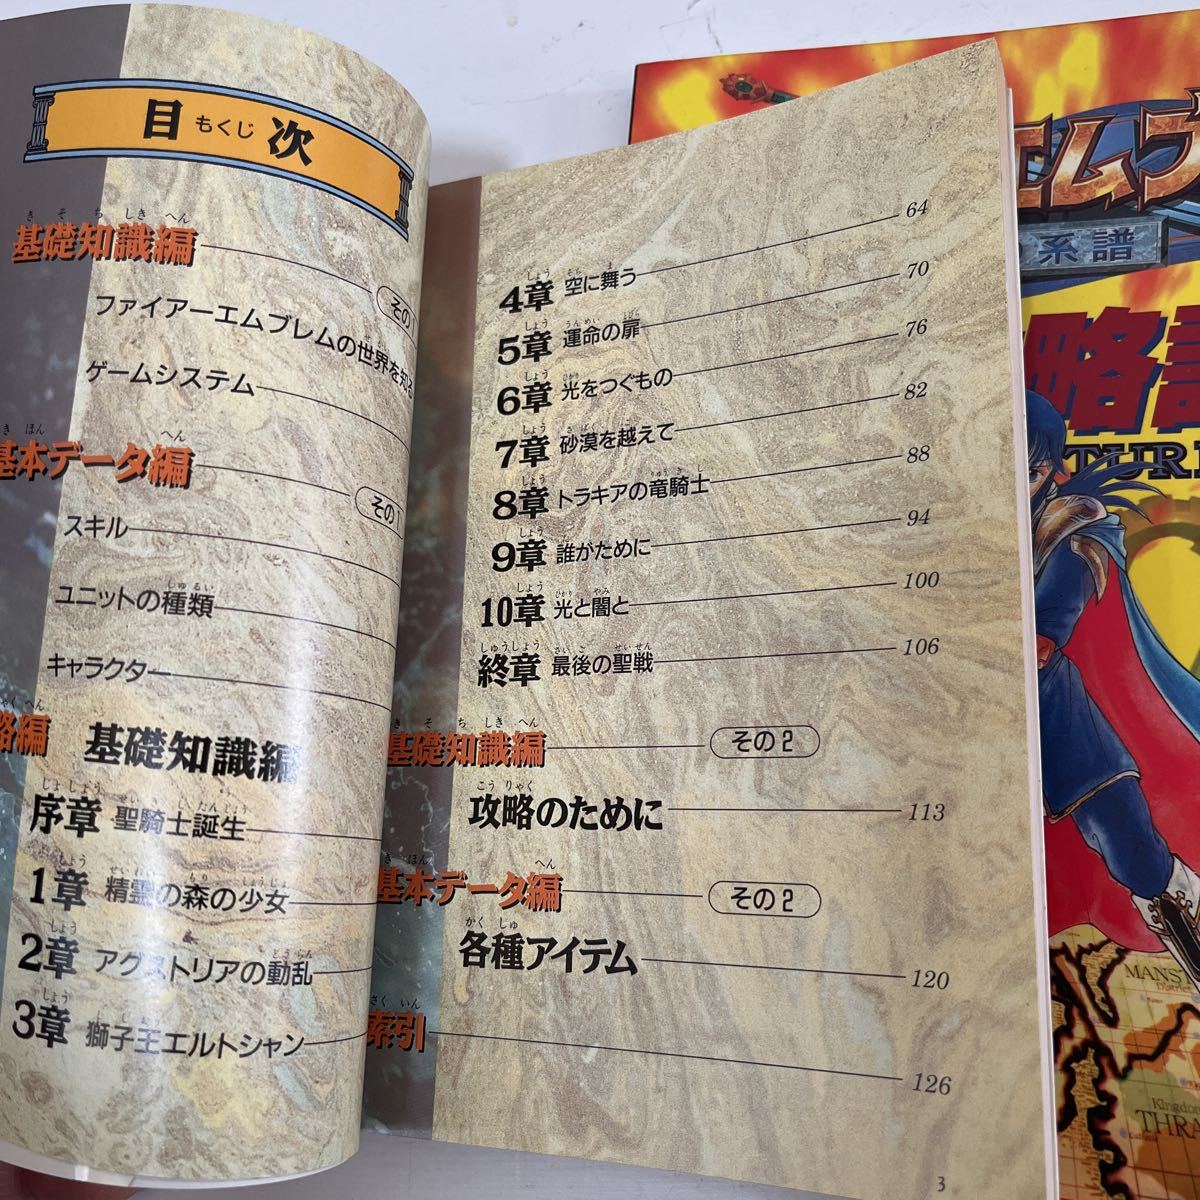 目もくじ次
きそちしきへん
基礎知識編
その1
ファイアーエムブレムの世界を知る
ゲームシステム
きほん へん
基本データ編
その1
スキル
しゅるい
ユニットの種類
キャラクター
略編
基礎知識編
序章 聖騎士誕生
1章 精霊の森の少女
2章 アグストリアの動乱
3章 獅子王エルトシャン
4章 空に舞う 64
5章 運命の扉 70
6章 光をつぐもの 76
7章 砂漠を越えて 82
8章 トラキアの竜騎士 88
9章 誰がために 94
10章 光と闇と 100
終章 最後の聖戦 106
きそちしきへん
基礎知識編 その2
こうりゃく
攻略のために 113
きほん へん
基本データ編 その2
かくしゅ
各種アイテム 120
さくいん
索引 126
3
エムブ
系譜
略
TURE
MANS
District
Kingdom
THRA